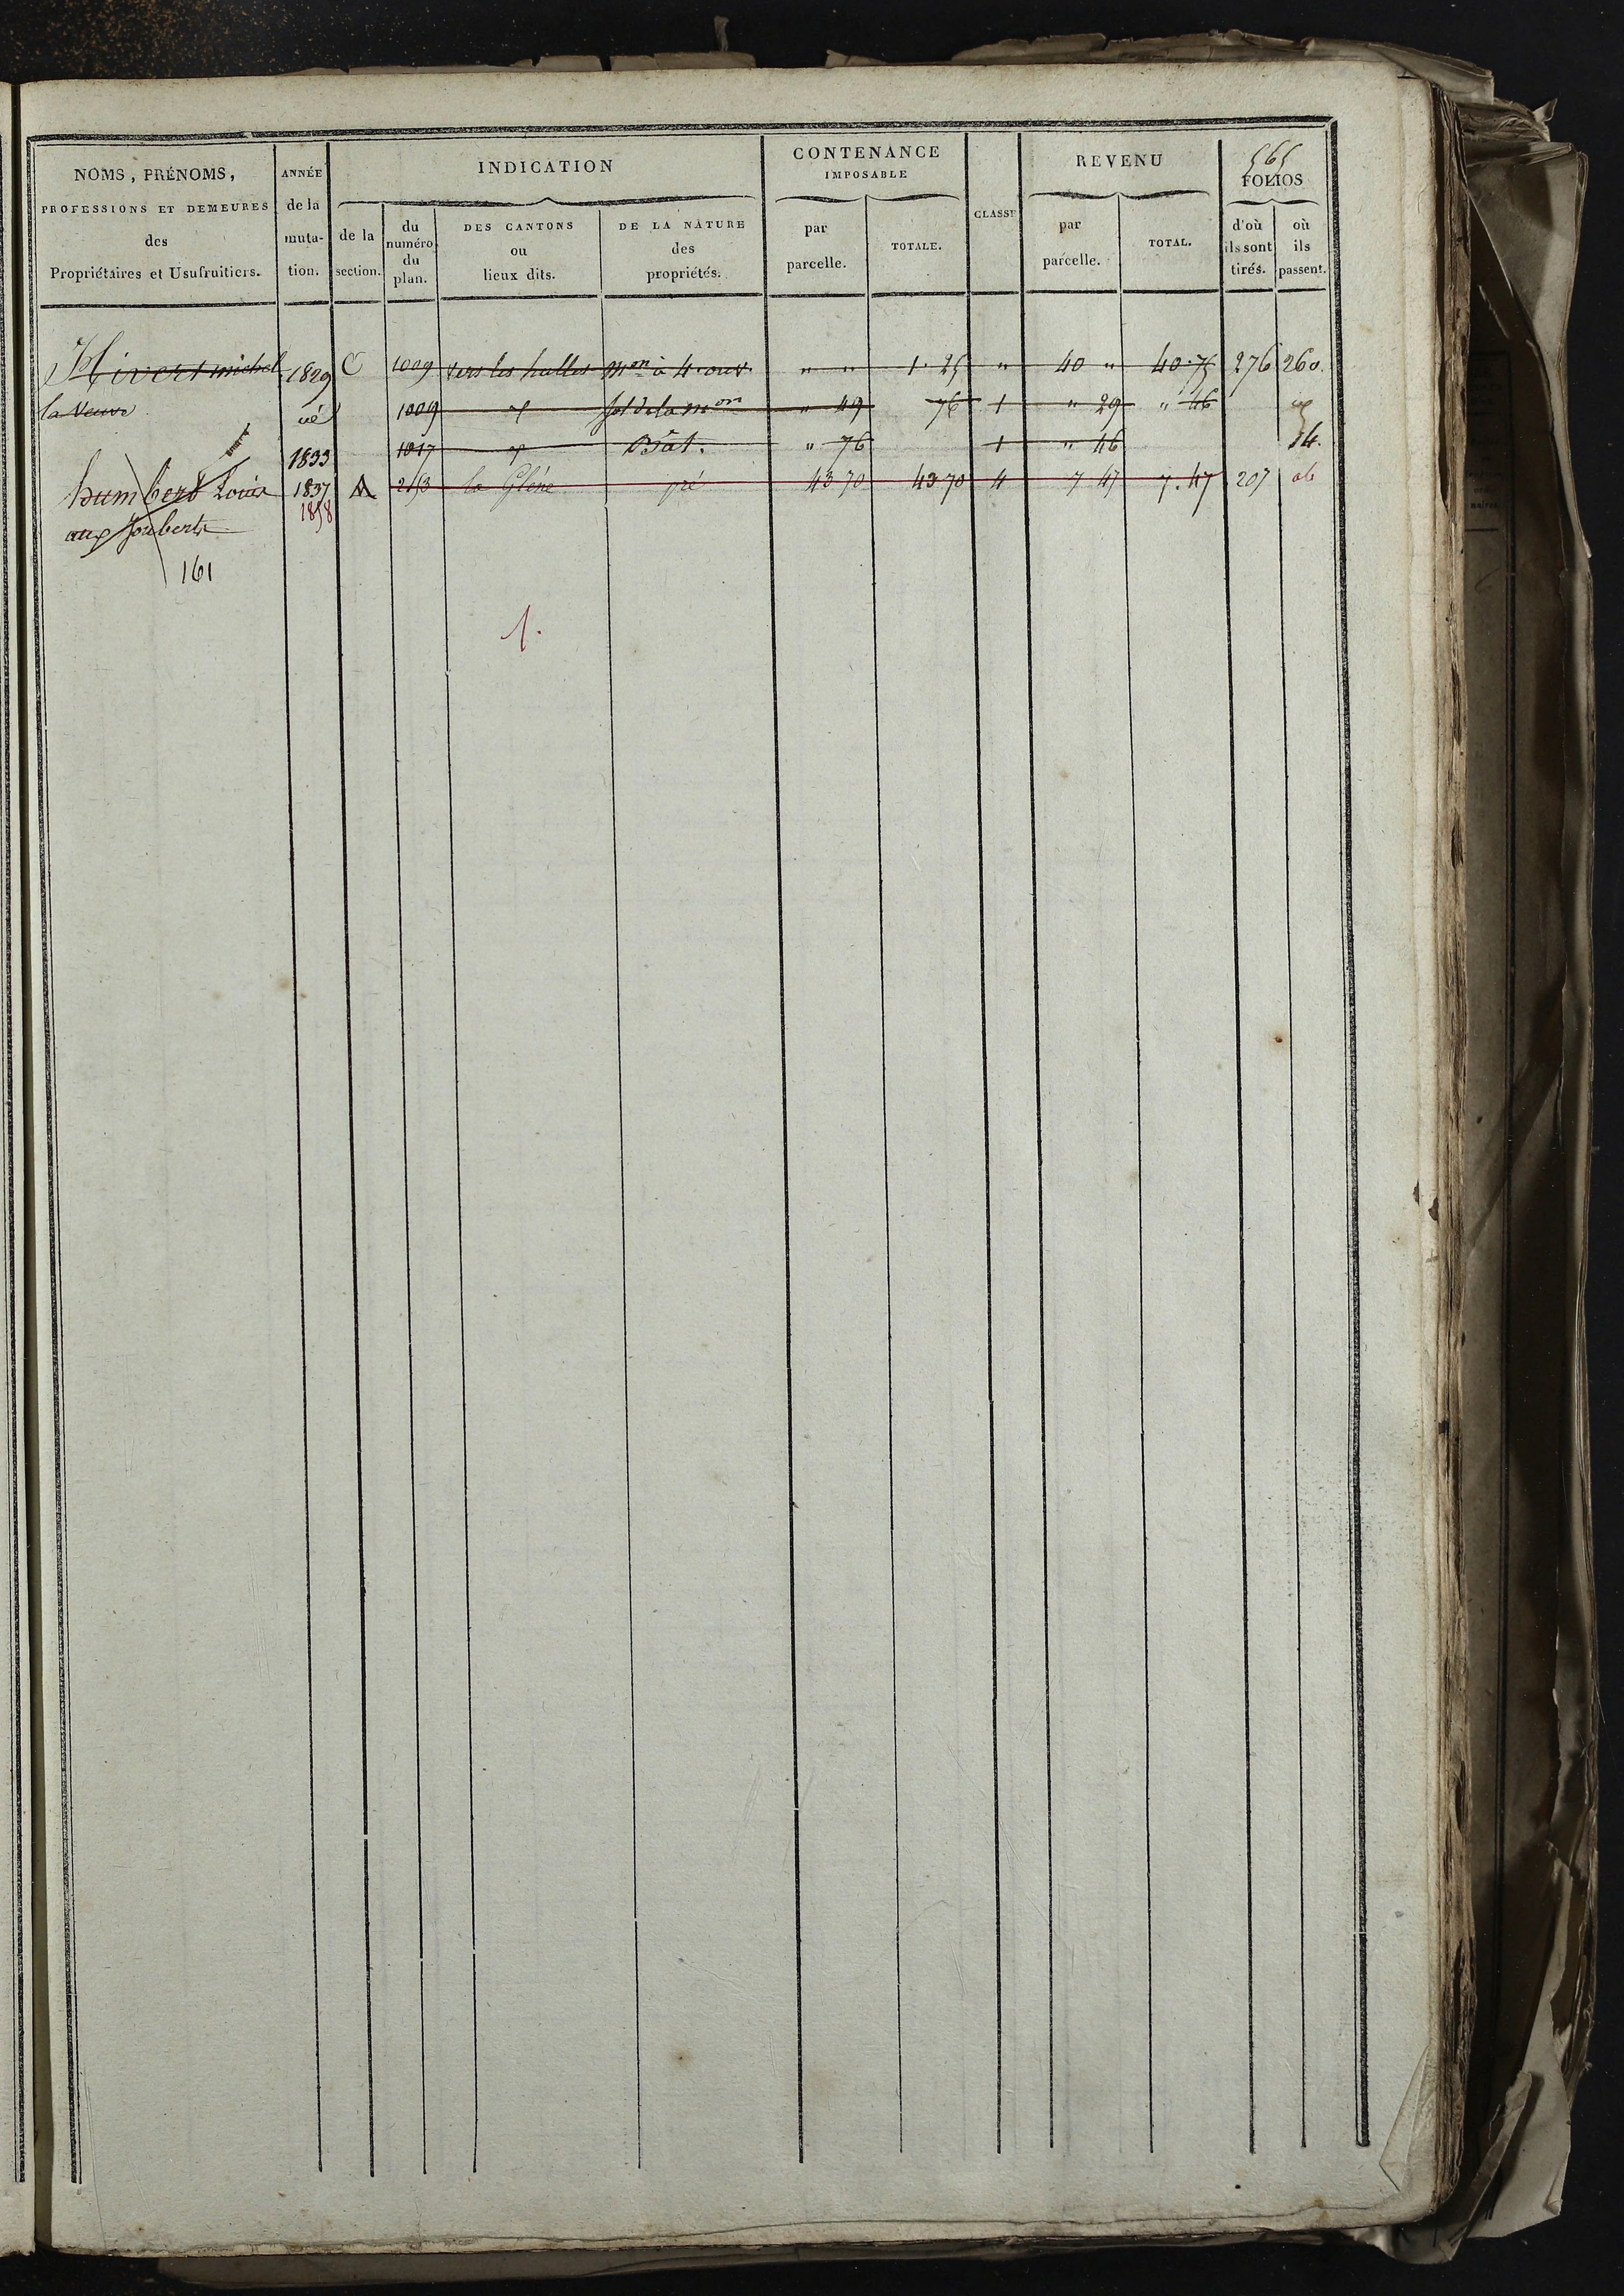 565
NOMS, PRÉNOMS, PROFESSIONS ET DEMEURES des Propriétaires et Usufruitiers.
ANNÉE de la muta- tion.
INDICATION
de la section.
du numéro du plan.
DES CANTONS ou lieux dits.
DE LA NATURE des propriétés.
CONTENANCE IMPOSABLE
par parcelle.
TOTALE.
CLASSE
REVENU
par parcelle.
TOTAL.
FOLIOS
d'où ils sont tirés.
où ils passent.
Hivert michel 1829 C 1009 vers les halles mon à 4. ouv. " " 1. 25 " 40 " 40.75 276 260.
la Veuve 1009 sol de la mon " 49 76 1 " 29 " 46
1833 1017 Bât. " 76 1 " 46 14.
humbert Louis 1837 213 la Glène pré 43 70 43 70 4 7 47 7.47 207
aux Jouberts 1858
161
1.